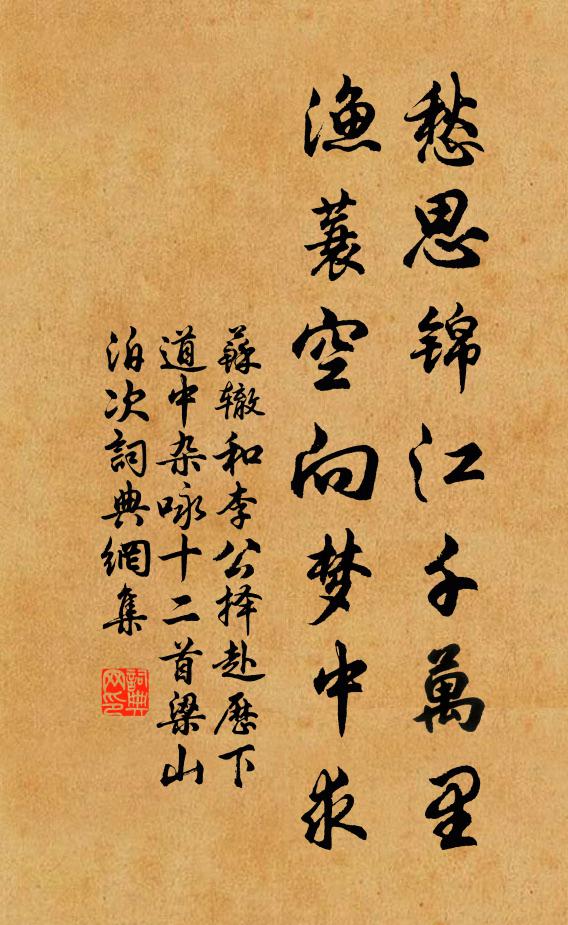 愁思锦江千萬里
漁蓑空向梦中求
蘇辙和李公择赴歷下
道中杂咏十二首梁山
泊次詞典網集
詞典
网印